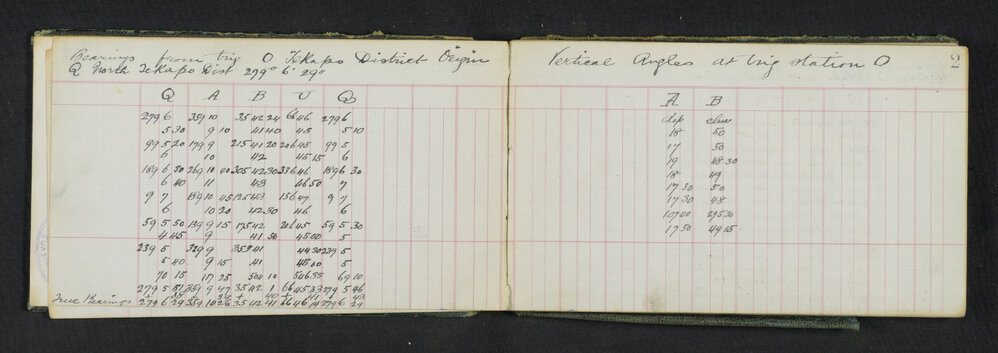 Bearings from trig O Tekapo District Origin
Q North Tekapo Dist 279° 6' 29"
Q A B U Q
279 6 359 10 35 42 24 66 46 279 6
5 30 9 10 41 40 45 5 10
99 5 20 179 9 215 41 20 206 45 99 5
6 10 42 45 15 6
189 6 30 269 10 40 305 42 30 336 46 189 6 30
6 40 11 43 46 50 7
9 7 189 10 45 125 43 156 47 9 7
6 10 20 42 30 46 6
59 5 50 139 9 15 175 42 206 45 59 5 30
4 45 9 41 50 45 00 5
239 5 329 9 355 41 44 30 239 5
5 40 9 15 41 45 00 5
70 15 117 25 504 10 546 55 69 10
279 5 51 359 9 47 35 42 1 66 45 33 279 5 46
+ 38 + 39 + 40 + 41 + 43
True Bearings 279 6 29 359 10 26 35 42 41 66 46 14 279 6 29
Vertical Angles at trig station O
15
A B
dep elev
18 50
17 50
19 48 30
18 49
17 30 50
17 30 48
107 00 295 30
17 50 49 15